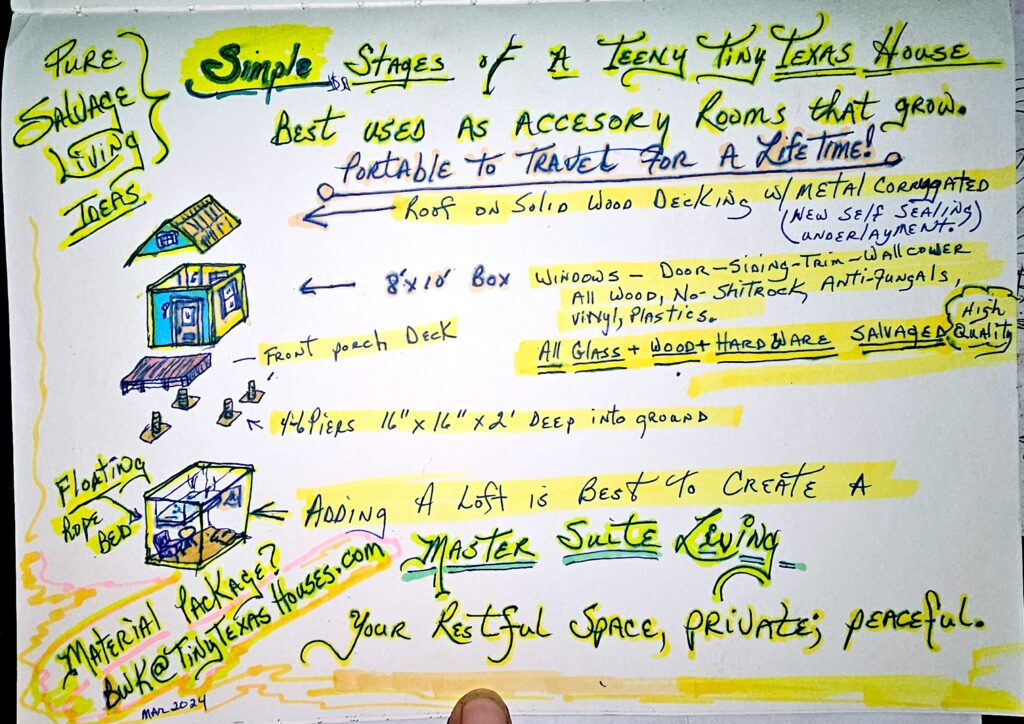 Pure
Salvage
Living
Ideas
Simple Stages of A Teeny Tiny Texas House
Best used as Accesory Rooms that grow.
Portable to Travel for A Lifetime!
Roof on Solid Wood Decking w/ Metal Corrugated
(New Self Sealing
underlayment.)
8'x10' Box
Windows - Door - Siding - Trim - Wallcower
All Wood, No-Shitrock, Anti-Fungals,
Vinyl, Plastics.
All Glass + Wood + Hardware Salvaged
High
Quality
Front porch Deck
4-6 Piers 16" x 16" x 2' Deep into ground
Floating
Rope
Bed
Adding A Loft is Best to Create A
Master Suite Living
Your Restful Space, private; peaceful.
Material Package?
BWK@TinyTexasHouses.com
Mar 2024